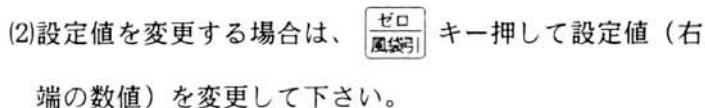 (2)設定値を変更する場合は、 ゼロ
風袋引 キー押して設定値（右
端の数値）を変更して下さい。